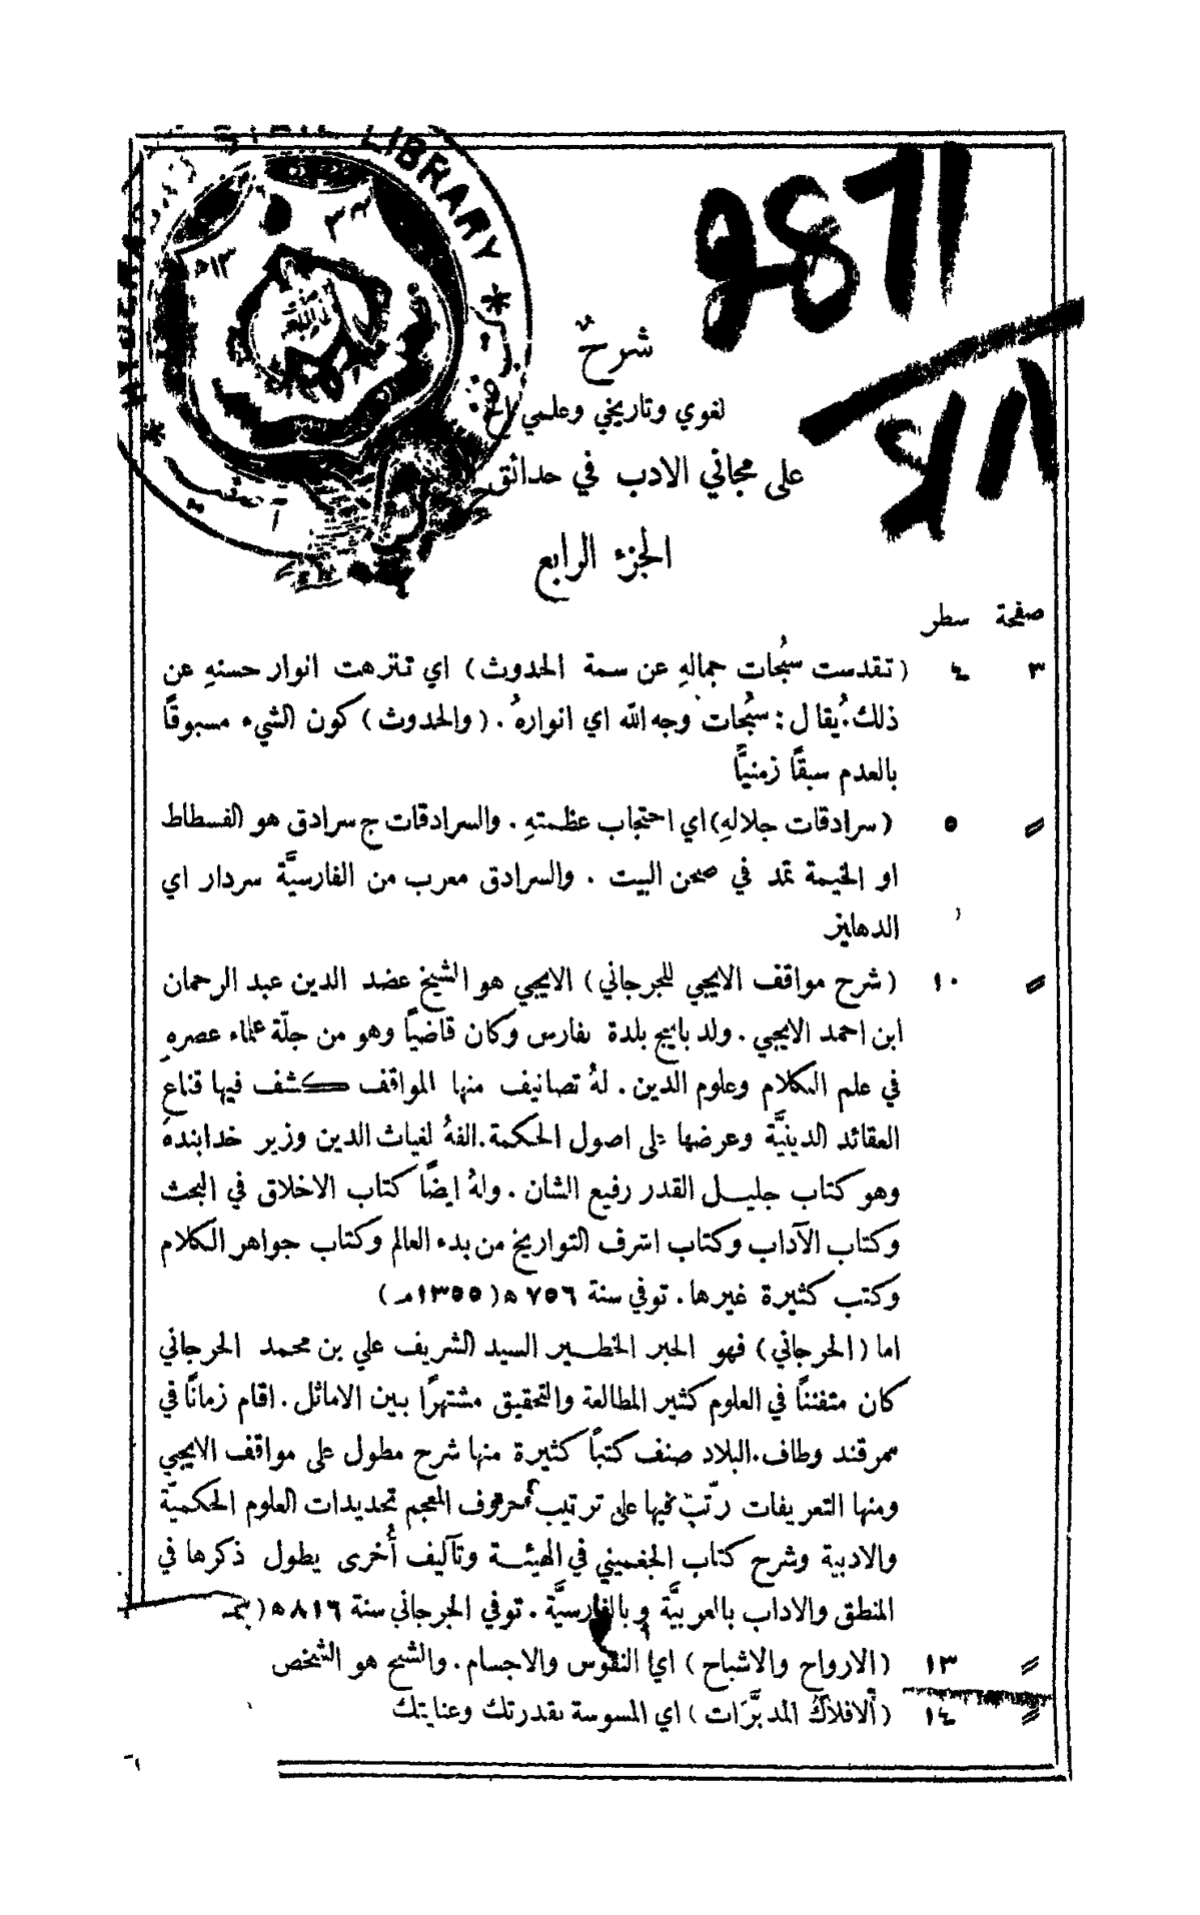 LIBRARY
شرحٌ
لغوي وتاريخي وعلمي
على مجاني الادب في حدائق
الجزء الرابع
صفحة سطر
٣ ٤ (تقدست سُبُحات جمالهِ عن سمة الحدوث) اي تنزهت انوار حسنهِ عن
ذلك. يُقال: سُبُحات وجه الله اي انوارهُ. (والحدوث) كون الشيء مسبوقًا
بالعدم سبقًا زمنيًّا
〃 ٥ (سرادقات جلالهِ) اي احتجاب عظمتهِ. والسرادقات ج سرادق هو الفسطاط
او الخيمة تمد في صحن البيت. والسرادق معرب من الفارسيَّة سردار اي
الدهليز
〃 ١٠ (شرح مواقف الايجي للجرجاني) الايجي هو الشيخ عضد الدين عبد الرحمان
ابن احمد الايجي. ولد بايج بلدة بفارس وكان قاضيًا وهو من جلّة علماء عصرهِ
في علم الكلام وعلوم الدين. لهُ تصانيف منها المواقف كشف فيها قناع
العقائد الدينيَّة وعرضها على اصول الحكمة. الفهُ لغياث الدين وزير خدابنده
وهو كتاب جليل القدر رفيع الشان. ولهُ ايضًا كتاب الاخلاق في البحث
وكتاب الآداب وكتاب اشرف التواريخ من بدء العالم وكتاب جواهر الكلام
وكتب كثيرة غيرها. توفي سنة ٧٥٦ ه (١٣٥٥م)
اما (الجرجاني) فهو الحبر الخطير السيد الشريف علي بن محمد الجرجاني
كان متفننًا في العلوم كثير المطالعة والتحقيق مشتهرًا بين الاماثل. اقام زمانًا في
سمرقند وطاف البلاد صنف كتبًا كثيرة منها شرح مطول على مواقف الايجي
ومنها التعريفات رتّب فيها على ترتيب حروف المعجم تحديدات العلوم الحكميَّة
والادبية وشرح كتاب الجغميني في الهيئة وتآليف أُخرى يطول ذكرها في
المنطق والاداب بالعربيَّة وبالفارسيَّة. توفي الجرجاني سنة ٨١٦ه (
〃 ١٣ (الارواح والاشباح) اي النفوس والاجسام. والشبح هو الشخص
〃 ١٤ (الافلاك المدبَّرَات) اي المسوسة بقدرتك وعنايتك